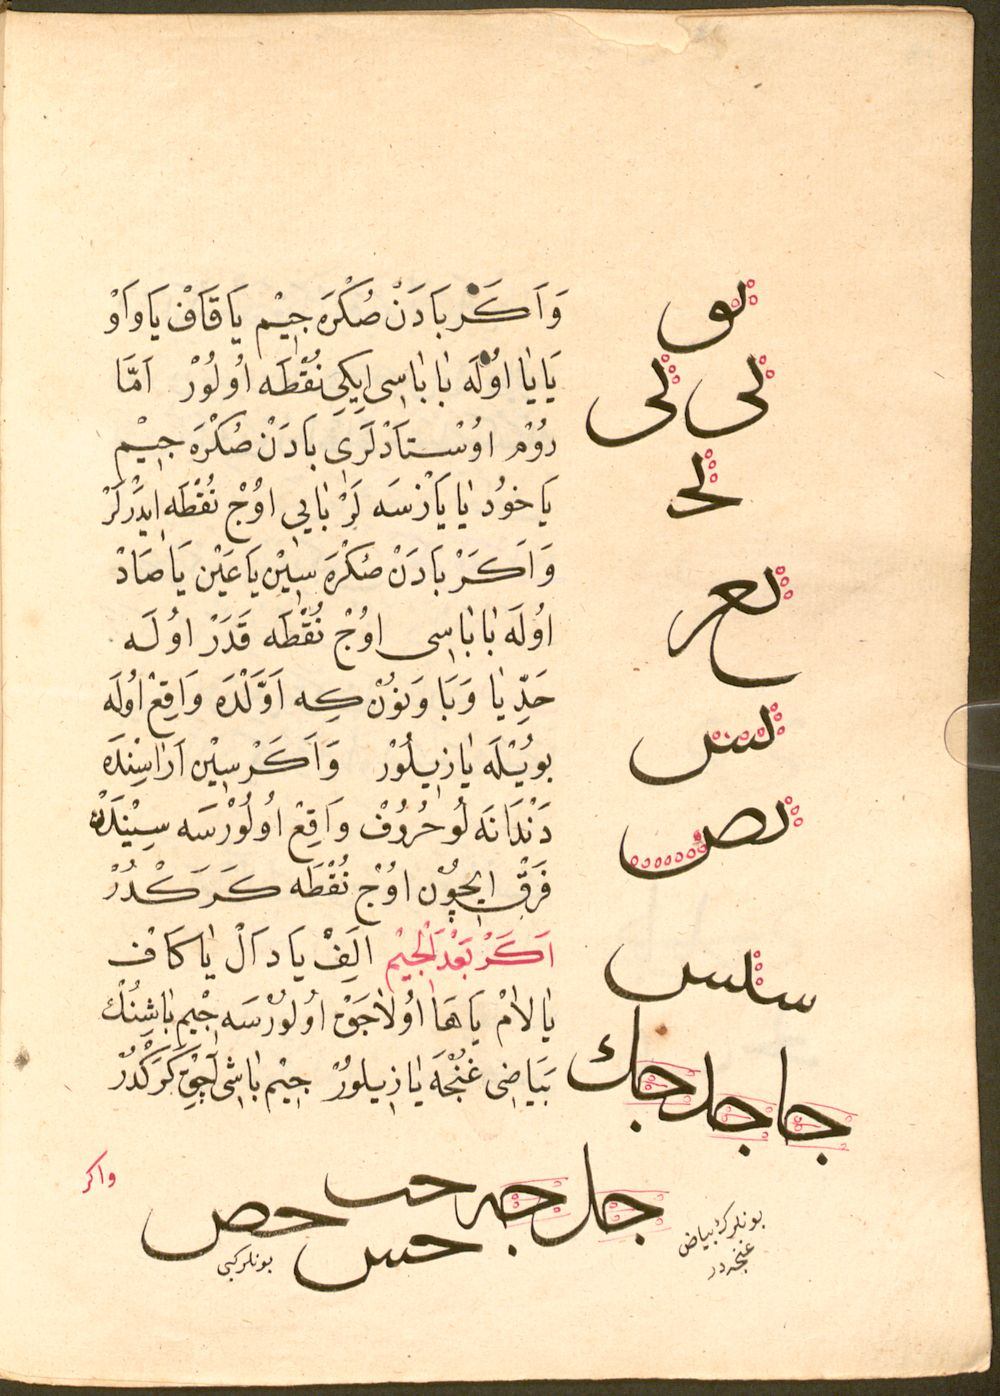 وَاَكَرْ بَادَنْ صُكْرَه جِيْم يَا قَافْ يَا وَاوْ
يَا يَا اوُلَه بَا بَاسِى اِيكِى نُقْطَه اُولُورْ اَمَّا
رُومْ اوُسْتَادْلَرِى بَادَنْ صُكْرَه جِيْم
يَا خوُد يَا يَازْسَه لَرْ بَايِى اوُجْ نُقْطَه اِيدَرْلَرْ
وَاَكَرْ بَادَنْ صُكْرَه سِيْن يَا عَيْن يَا صَادْ
اوُلَه بَا بَاسِى اوُجْ نُقْطَه قَدَرْ اوُلَه
حَدِّ يَا وَبَا وَنوُنْ كِه اَوَّلْدَه وَاقِعْ اوُلَه
بوُيْلَه يَازِيلُوْر وَاَكَرْ سِيْن اَرَاسِنْدَه
دَنْدَانَه لُو حُرُوفْ وَاقِعْ اُولُورْسَه سِيْنْدَنْ
فَرْق اِيچوُن اوُجْ نُقْطَه كَرَكْدُرْ
اَكَرْ بَعْدَ الْجِيْم اَلِفْ يَا دَالْ يَا كَافْ
يَا لَامْ يَا هَا اُولَاجَوْق اُولُورْسَه جِيْم بَاشِنُكْ
بَيَاضِى غُنْجَه يَازِيلوُرْ جِيْم بَاشِى آجِقْ كَرَكْدُرْ
بو
لى لى
لح
بعر
لس
بص
سلس
جا جد جك
جل جه حب
حس حص
بونلرك بياض
غنجه در
بونلر كبى
واكر